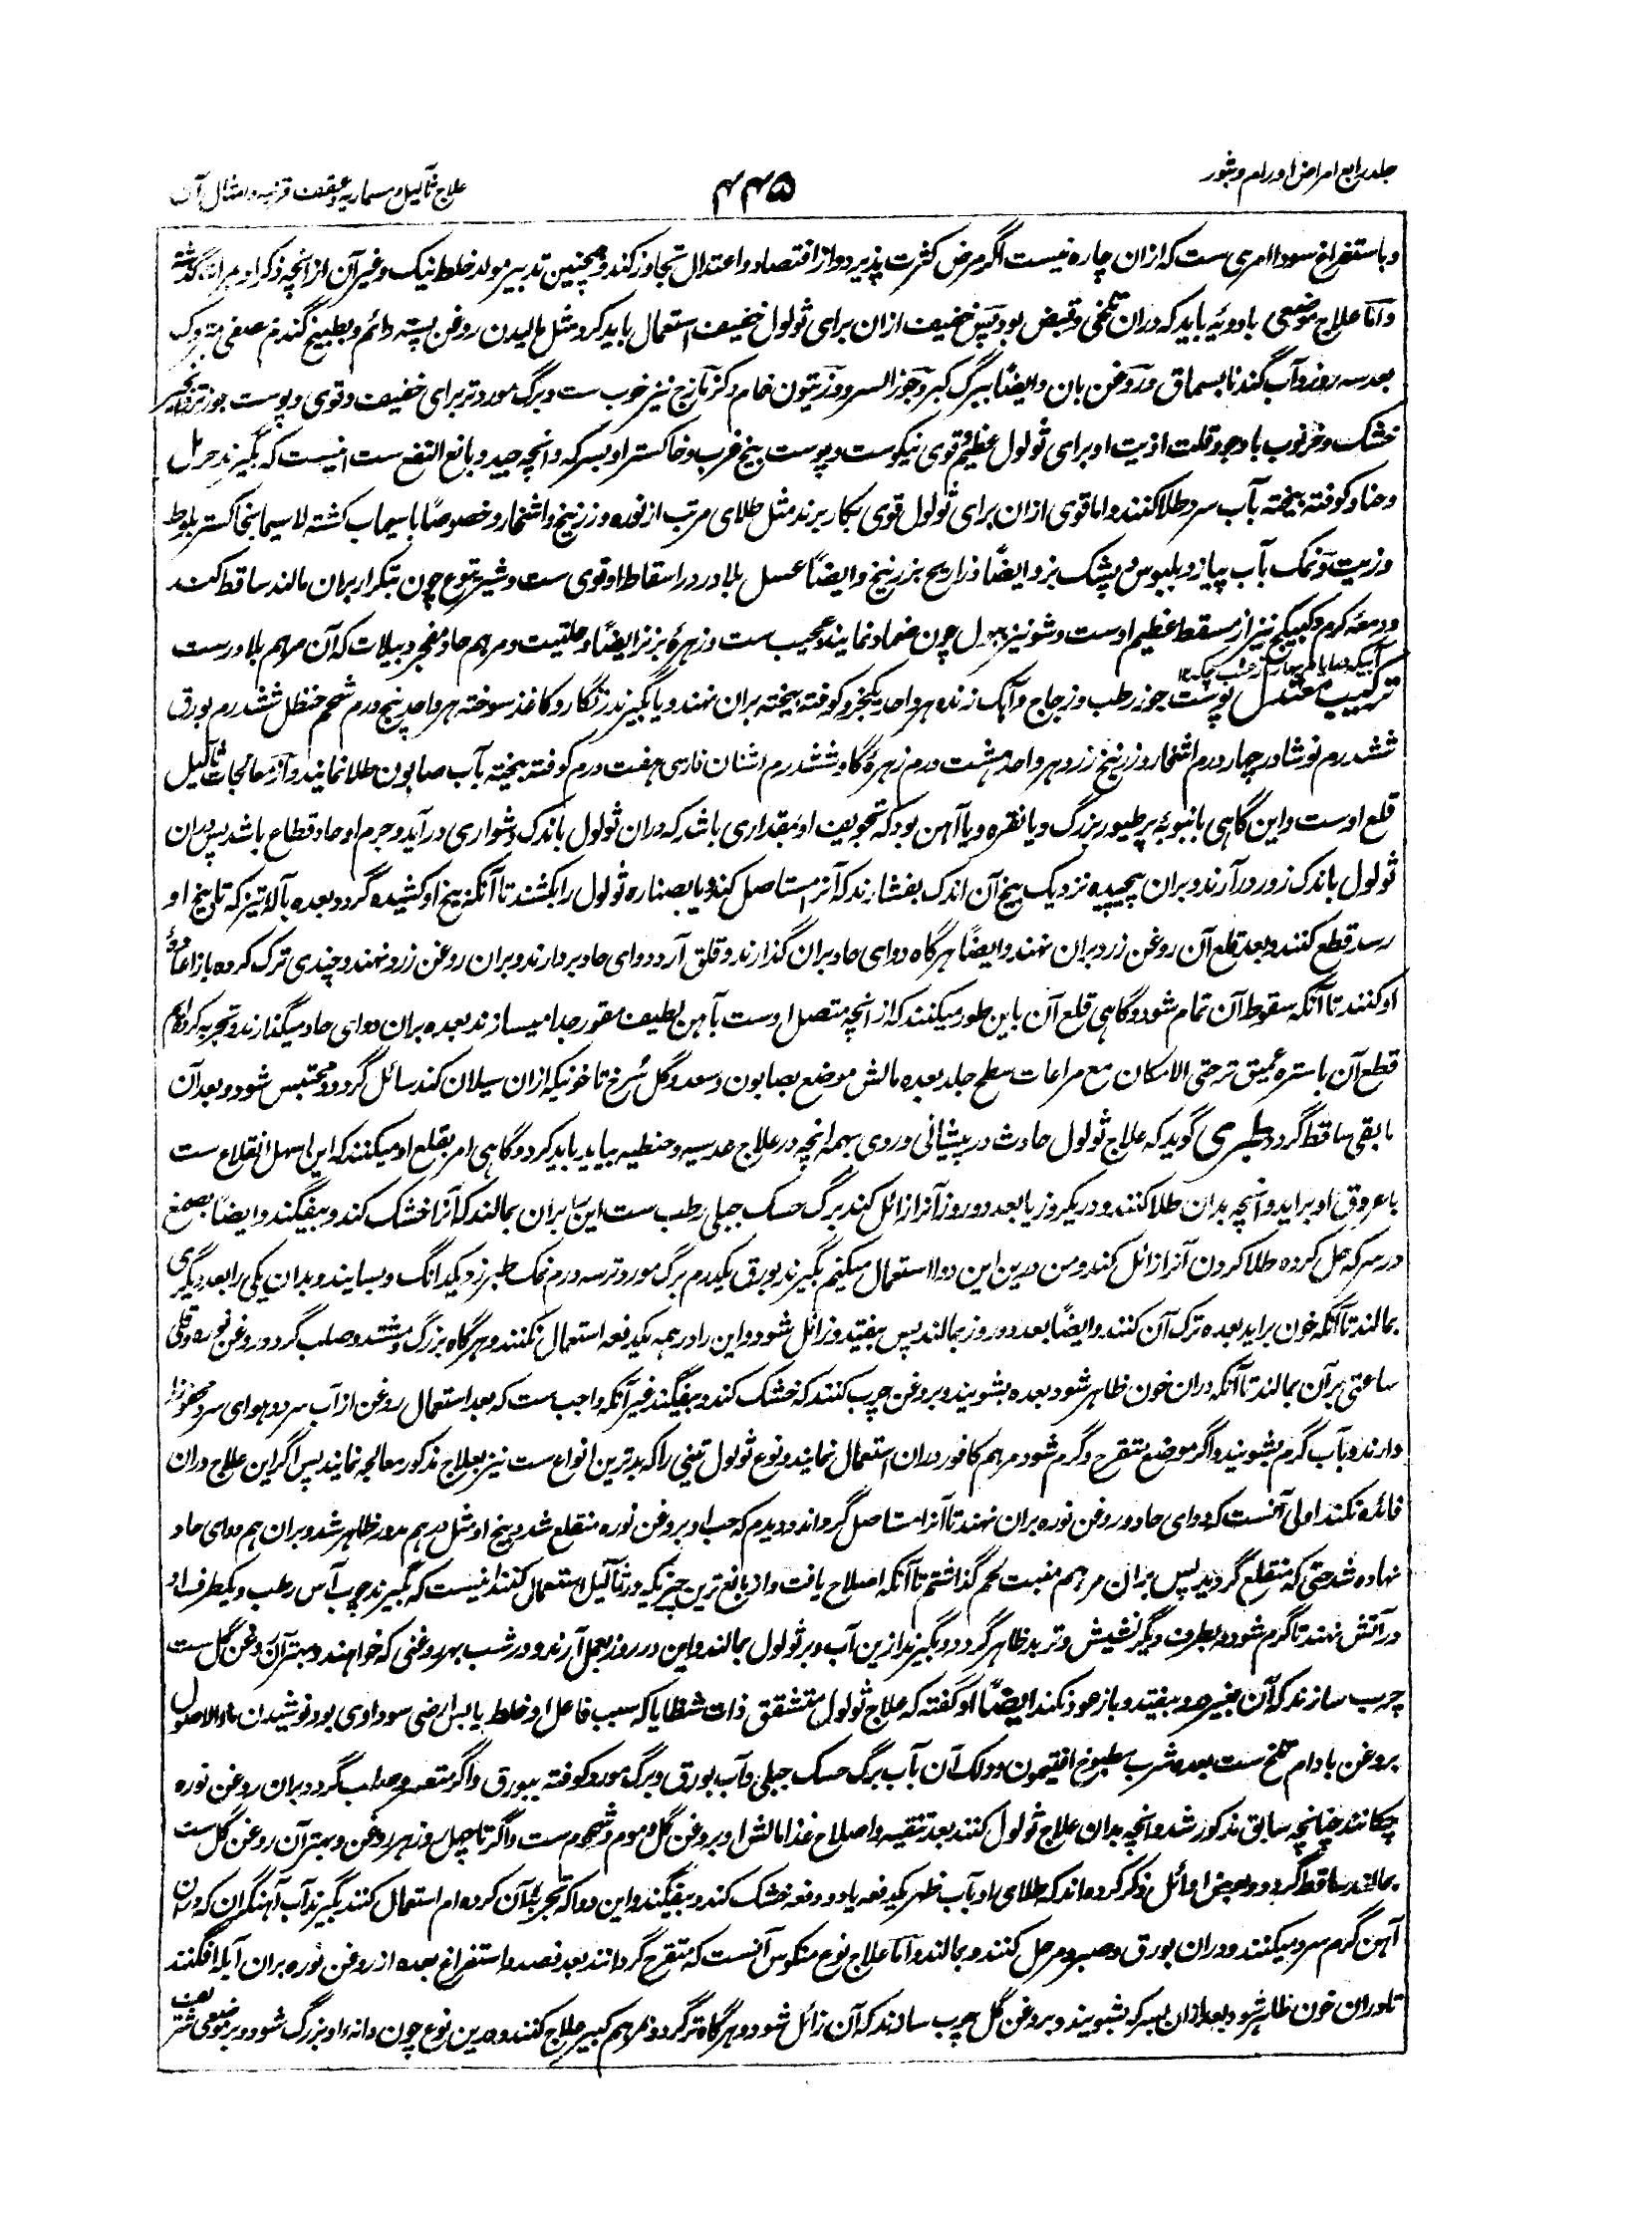 جلد رابع امراض اورام و بثور
۴۴۵
علاج ثآلیل و مسماریه و عقفت قرنیه و امثال آن
و باستفراغ سودا امری ست که ازان چاره نیست اگر مرض کثرت پذیرد و از اقتصاد و اعتدال تجاوز کند و همچنین تدبیر مولد خلط نیک و غیر آن از انچه ذکر او مرارا گذشته
و اما علاج موضعی بادویه باید که دران تلخی و قبض بود پس خفیف ازان برای ثولول خفیف استعمال باید کرد مثل مالیدن روغن پسته دائم و بطبیخ گندم صفی متروک
بعد سه روز و آب گندنا بسماق و روغن بان و ایضاً ببرگ کبر و جوز السرو و زیتون خام و کزمازج نیز خوب ست و برگ مورد تر برای خفیف و قوی و پوست جوز تر و انجیر
خشک و خرنوب با وجود قلت اذیت او برای ثولول عظیم و قوی نیکوست و پوست بیخ غرب و خاکستر او بسرکه و انچه جید و بالغ النفع ست اینست که بگیرند حرمل
و حنا و کوفته بیخته بآب سرد طلا کنند و اما قوی ازان برای ثولول قوی بکار برند مثل طلای مرتب از نوره و زرنیخ و اشخار و خصوصاً با سیماب کشته لا سیما بخاکستر بلوط
و زیت و نمک بآب پیاز و بلبوس و پشک بز و ایضاً ذراریح بزرنیخ و ایضاً عسل بلادر در اسقاط او قوی ست و شیر یتوع چون بتکرار بران مالند ساقط کند
و دمعه کرم و کبیکج نیز از مسقط عظیم اوست و شونیز ببول چون ضماد نمایند عجیب ست و زهره بز نر ایضاً و حلتیت و مرهم حاد مفجر دبیلات که آن مرهم بلادر ست
ترکیب معتدل پوست جوز رطب و زجاج و آهک زنده هر واحد یکجزو کوفته بیخته بران نهند و یا بگیرند زنگار و کاغذ سوخته هر واحد پنج درم شحم حنظل ششدرم بورق
ششدرم نوشادر چهار درم اشخار و زرنیخ زرد هر واحد هشت درم زهره گاو ششدرم اشنان فارسی هفت درم کوفته بیخته بآب صابون طلا نمایند و از معالجات ثآلیل
قلع اوست و این گاهی بانبوبه پر طیور بزرگ و یا نقره و یا آهن بود که تجویف او بمقداری باشد که دران ثولول باندک دشواری در آید و جرم او حاد قطاع باشد پس دران
ثولول باندک زور در آرند و بران پیچیده نزدیک بیخ آن اندک بفشارند که آنرا مستاصل کند و یا بصناره ثولول را بکشند تا آنکه بیخ او کشیده گردد بعده بآله تیز که تا بیخ او
رسد قطع کنند و بعد قلع آن روغن زرد بران نهند و ایضاً هرگاه دوای حاد بران گذارند و قلق آرد دوای حاد بردارند و بران روغن زرد نهند و چندی ترک کرده باز اعاده
او کنند تا آنکه سقوط آن تمام شود و گاهی قلع آن باین طور میکنند که از انچه متصل اوست بآهن لطیف مقور جدا میسازند بعده بران دوای حاد میگذارند و تجربه کرده ایم
قطع آن باستره عمیق تر حتی الامکان مع مراعات سطح جلد بعده مالش موضع بصابون و سعد و گل سرخ تا خونیکه ازان سیلان کند سائل گردد و محتبس شود و بعد آن
مابقی ساقط گردد طبری گوید که علاج ثولول حادث در پیشانی و روی بهمه انچه در علاج عدسیه و حنطیه بیاید باید کرد و گاهی امر بقلع او میکنند که این سهل انقلاع ست
با عروق او براید و انچه بدان طلا کنند و در یکروز یا بعد دو روز آنرا زائل کند برگ حسک جبلی رطب ست این را بران بمالند که آنرا خشک کند و بیفگند و ایضاً بصمغ
در سرکه حل کرده طلا کردن آنرا زائل کند و من درین این دوا استعمال میکنم بگیرند بورق یکدرم برگ مورد تر سه درم نمک طبرزد یکدانگ و بسایند و بدان یکی را بعد دیگری
بمالند تا آنکه خون براید بعده ترک آن کنند و ایضاً بعد دو روز بمالند پس بیفتد و زائل شود و این را در همه یکدفعه استعمال نکنند و هرگاه بزرگ و مشتد و صلب گردد روغن نوره
ساعتی بر آن بمالند تا آنکه دران خون ظاهر شود بعده بشویند و بروغن چرب کنند که خشک کند و بیفگند غیر آنکه واجب ست که بعد استعمال روغن از آب سرد و هوای سرد محفوظ
دارند و بآب گرم بشویند و اگر موضع متقرح و گرم شود مرهم کافور دران استعمال نمایند و نوع ثولول تینی را که بدترین انواع ست نیز بعلاج مذکور معالجه نمایند پس اگر این علاج دران
فائده نکند اولی آنست که دوای حاد و روغن نوره بران نهند تا آنرا مستاصل گرداند و دیدم که حب او بروغن نوره منقلع شد و بیخ او مثل درهم مدور ظاهر شد و بران هم دوای حاد
نهاده شد حتی که منقلع گردید پس بران مرهم منبت لحم گذاشتم تا آنکه اصلاح یافت و از نافع ترین چیزیکه در ثآلیل استعمال کنند اینست که بگیرند چوب آس رطب و یکطرف او
در آتش نهند تا گرم شود و بطرف دیگر نشیش و تر بد ظاهر گردد و بگیرند ازین آب و بر ثولول بمالند و این در روز بعمل آرند و در شب بهر روغنی که خواهند و بهتر آن روغن گل ست
چرب سازند که آن بمیرد و بیفتد و باز عود نکند ایضاً او گفته که علاج ثولول متشقق ذات شظایا که سبب فاعل او خلط یابس ارضی سوداوی بود نوشیدن ماء الاصول
بروغن بادام تلخ ست بعده شرب مطبوخ افتیمون و دلک آن بآب برگ حسک جبلی و آب بورق و برگ مورد کوفته ببورق و اگر متعسر و صلب گردد بران روغن نوره
چکانند چنانچه سابق مذکور شد و انچه بدان علاج ثولول کنند بعد تنقیه و اصلاح غذا مالش او بروغن گل و موم و شحوم ست و اگر تا چهل روز بهر روغن و بهتر آن روغن گل ست
بمالند ساقط گردد و بعض اوائل ذکر کرده اند که طلای او بآب ظهر یکدفعه یا دو دفعه خشک کند و بیفگند و این دوا که تجربه آن کرده ام استعمال کنند بگیرند آب آهنگران که دران
آهن گرم سرد میکنند و دران بورق و صبر و مر حل کنند و بمالند و اما علاج نوع منکوس آنست که متقرح گردانند بعد فصد و استفراغ بعده از روغن نوره بران آبله افگنند
تا دران خون ظاهر شود بعد ازان بسرکه بشویند و بروغن گل چرب سازند که آن زائل شود و هرگاه تر گردد بمرهم کبیر علاج کنند و درین نوع چون دانه او بزرگ شود و بر موضعی